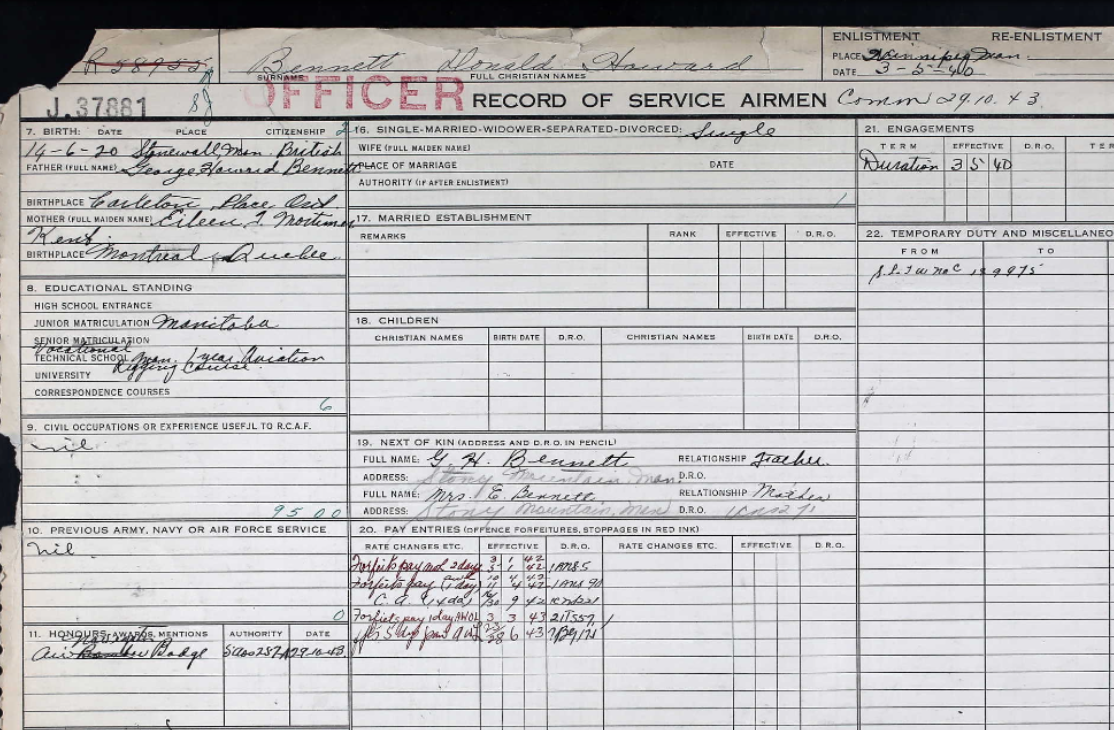 ENLISTMENT RE-ENLISTMENT
R58955
Bennett Donald Howard
SURNAME FULL CHRISTIAN NAMES
PLACE Winnipeg Man.
DATE 3-5-40
J.37881
OFFICER
RECORD OF SERVICE AIRMEN Comm 29.10.43.
7. BIRTH: DATE PLACE CITIZENSHIP
14-6-20 Stonewall, Man. British
FATHER (FULL NAME) George Howard Bennett
BIRTHPLACE Carleton Place Ont.
MOTHER (FULL MAIDEN NAME) Eileen I. Mortimer
Kent.
BIRTHPLACE Montreal, Quebec.
8. EDUCATIONAL STANDING
HIGH SCHOOL ENTRANCE
JUNIOR MATRICULATION Manitoba
SENIOR MATRICULATION
Vocational
TECHNICAL SCHOOL Man. 1 year Aviation
Rigging Course.
UNIVERSITY
CORRESPONDENCE COURSES
6
9. CIVIL OCCUPATIONS OR EXPERIENCE USEFUL TO R.C.A.F.
nil
95 00
10. PREVIOUS ARMY, NAVY OR AIR FORCE SERVICE
nil
0
11. HONOURS, AWARDS, MENTIONS AUTHORITY DATE
Navigator
Air Badge 29-10-43.
16. SINGLE-MARRIED-WIDOWER-SEPARATED-DIVORCED: Single
WIFE (FULL MAIDEN NAME)
PLACE OF MARRIAGE DATE
AUTHORITY (IF AFTER ENLISTMENT)
17. MARRIED ESTABLISHMENT
REMARKS RANK EFFECTIVE D.R.O.
18. CHILDREN
CHRISTIAN NAMES BIRTH DATE D.R.O. CHRISTIAN NAMES BIRTH DATE D.R.O.
19. NEXT OF KIN (ADDRESS AND D.R.O. IN PENCIL)
FULL NAME: G. H. Bennett RELATIONSHIP Father.
ADDRESS: Stony Mountain, Man. D.R.O.
FULL NAME: Mrs. E. Bennett RELATIONSHIP Mother
ADDRESS: Stony Mountain, Man D.R.O.
20. PAY ENTRIES (OFFENCE FORFEITURES, STOPPAGES IN RED INK)
RATE CHANGES ETC. EFFECTIVE D.R.O. RATE CHANGES ETC. EFFECTIVE D.R.O.
3 1 42
Forfeits pay 2 days 5 1 42
Forfeits pay (1 day) 11 4 42
C.B. (14 da) 30 9 42
Forfiets pay 1 day AWOL 3 3 43
5 day 28 6 43
21. ENGAGEMENTS
TERM EFFECTIVE D.R.O.
Duration 3 5 40
22. TEMPORARY DUTY AND MISCELLANEO
FROM TO